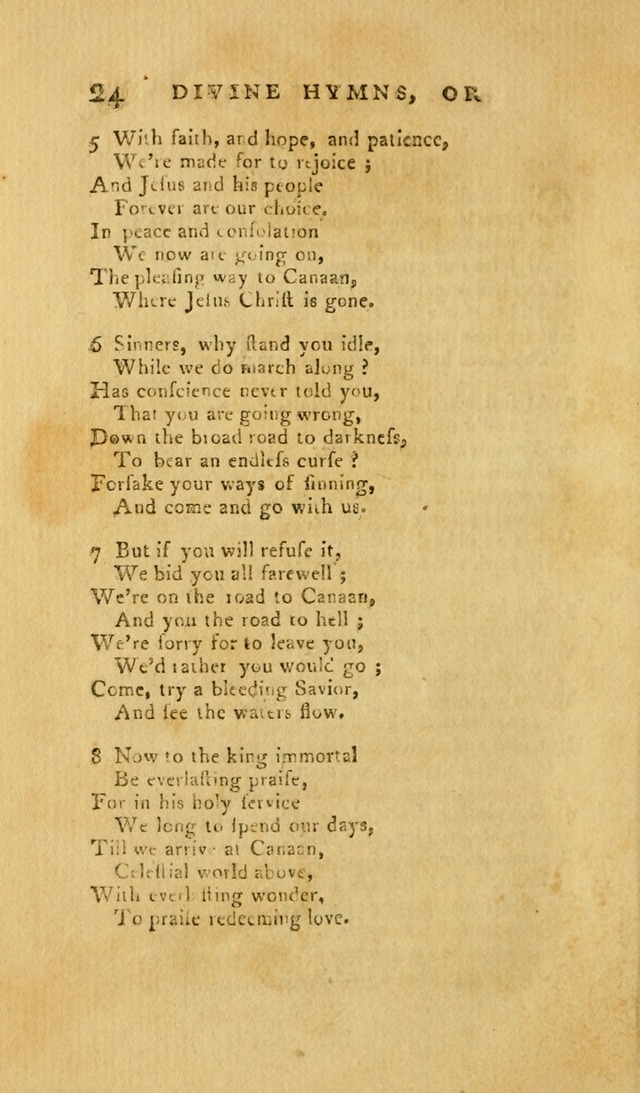 24 DIVINE HYMNS, OR
5 With faith, and hope, and patience,
We're made for to rejoice ;
And Jeſus and his people
Forever are our choice.
In peace and conſolation
We now are going on,
The pleaſing way to Canaan,
Where Jeſus Chriſt is gone.
6 Sinners, why ſtand you idle,
While we do march along ?
Has conſcience never told you,
That you are going wrong,
Down the broad road to darkneſs,
To bear an endleſs curſe ?
Forſake your ways of ſinning,
And come and go with us.
7 But if you will refuſe it,
We bid you all farewell ;
We're on the road to Canaan,
And you the road to hell ;
We're ſorry for to leave you,
We'd rather you would go ;
Come, try a bleeding Savior,
And ſee the waters flow.
8 Now to the king immortal
Be everlaſting praiſe,
For in his holy ſervice
We long to ſpend our days,
Till we arrive at Canaan,
Celeſtial world above,
With everlaſting wonder,
To praiſe redeeming love.